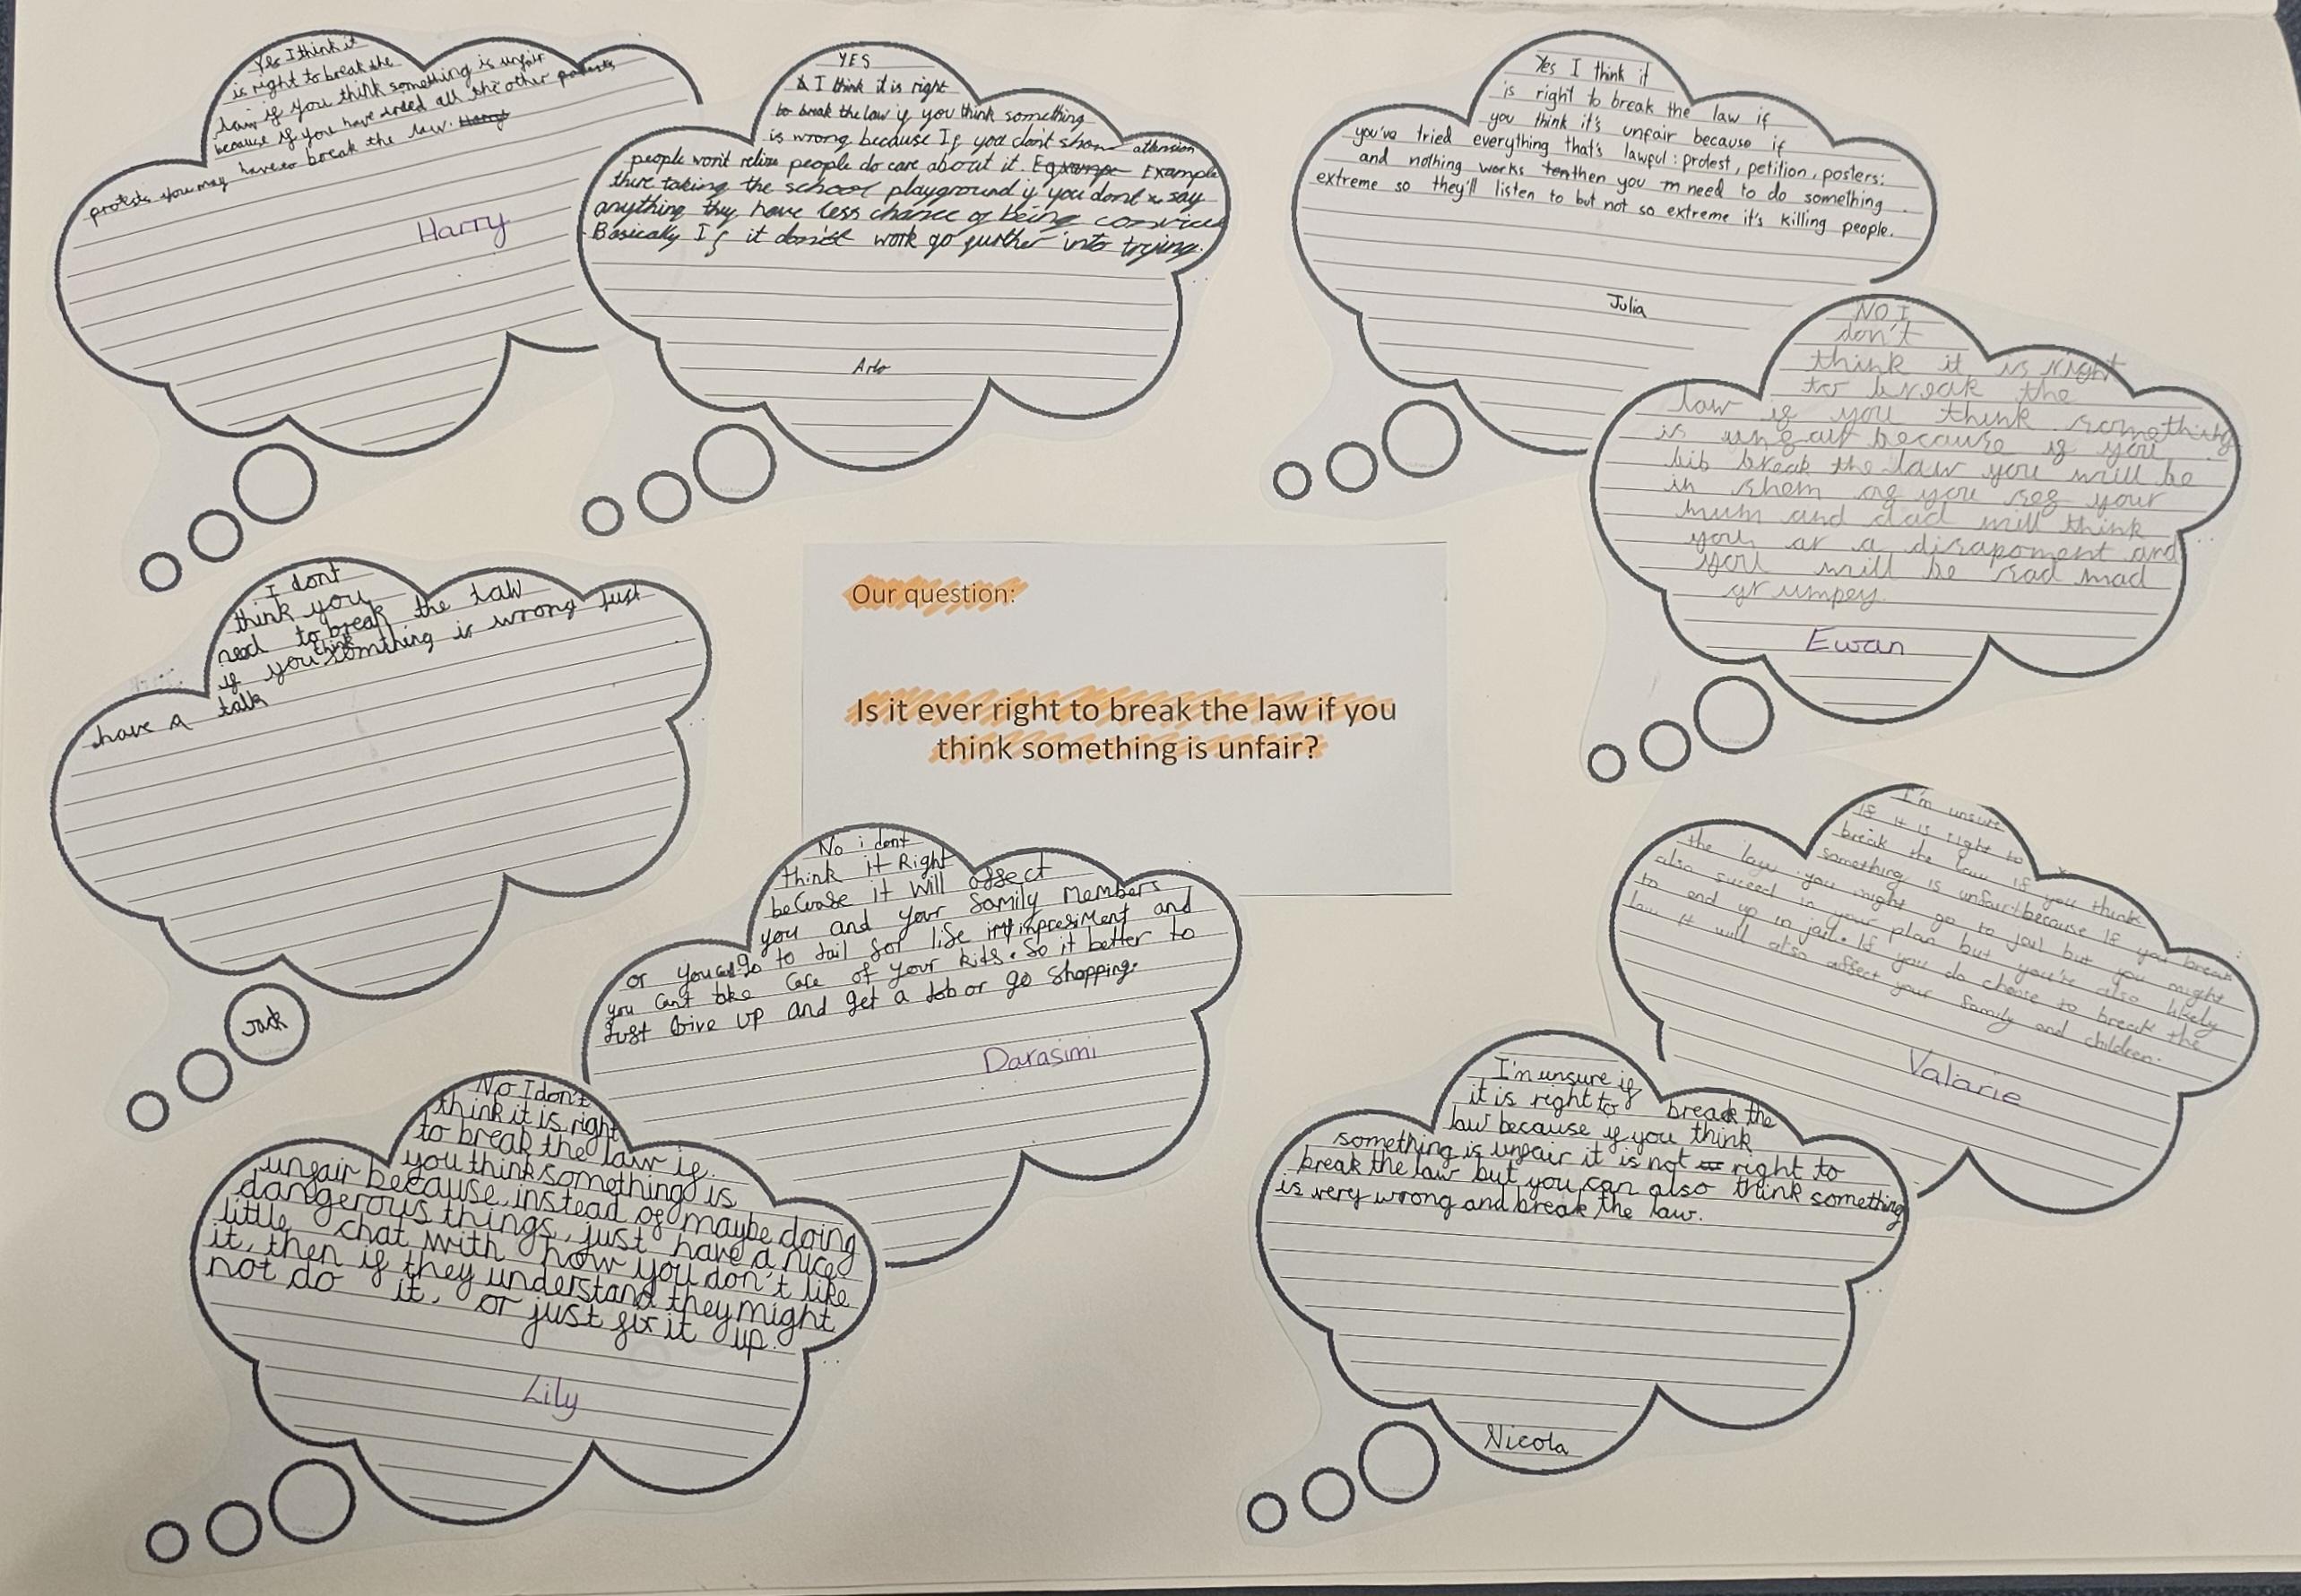 Yes I think it
is right to break the
law if you think something is unfair
because if you have ended all the other
protests you may have to break the law.
Harry
YES
I think it is right
to break the law if you think something
is wrong because If you don't show attension
people won't relise people do care about it. Example
there taking the school playground if you dont say
anything they have less chance of being
Basically If it doesn't work go further into trying.
Arlo
Yes I think it
is right to break the law if
you think it's unfair because if
you've tried everything that's lawful: protest, petition, posters:
and nothing works then you need to do something
extreme so they'll listen to but not so extreme it's killing people.
Julia
NO I
don't
think it is right
to break the
law if you think something
is unfair because if you
bib break the law you will be
in shem of you self your
mum and dad will think
you ar a disapoment and
you will be sad mad
grumpey.
Ewan
I dont
think you
need to break the law
if you think somthing is wrong Just
have a talk
Jack
Our question:
Is it ever right to break the law if you
think something is unfair?
No i dont
think it Right
becuase it will affect
you and your family Members
or you go to Jail for life and
you Can't take Care of your kids. So it better to
Just Give up and get a Job or go Shopping.
Darasimi
I'm unsure
if it is right to
break the law if you think
something is unfair because if you break
the law you might go to jail but you might
also suceed in your plan but you're also likely
to end up in jail. If you do choose to break the
law it will also affect your family and children.
Valarie
No I don't
think it is right
to break the law if
you think something is
unfair because, instead of maybe doing
dangerous things, just have a nice
little chat with how you don't like
it, then if they understand they might
not do it, or just fix it up.
Lily
I'm unsure if
it is right to break the
law because if you think
something is unfair it is not right to
break the law but you can also think something
is very wrong and break the law.
Nicola